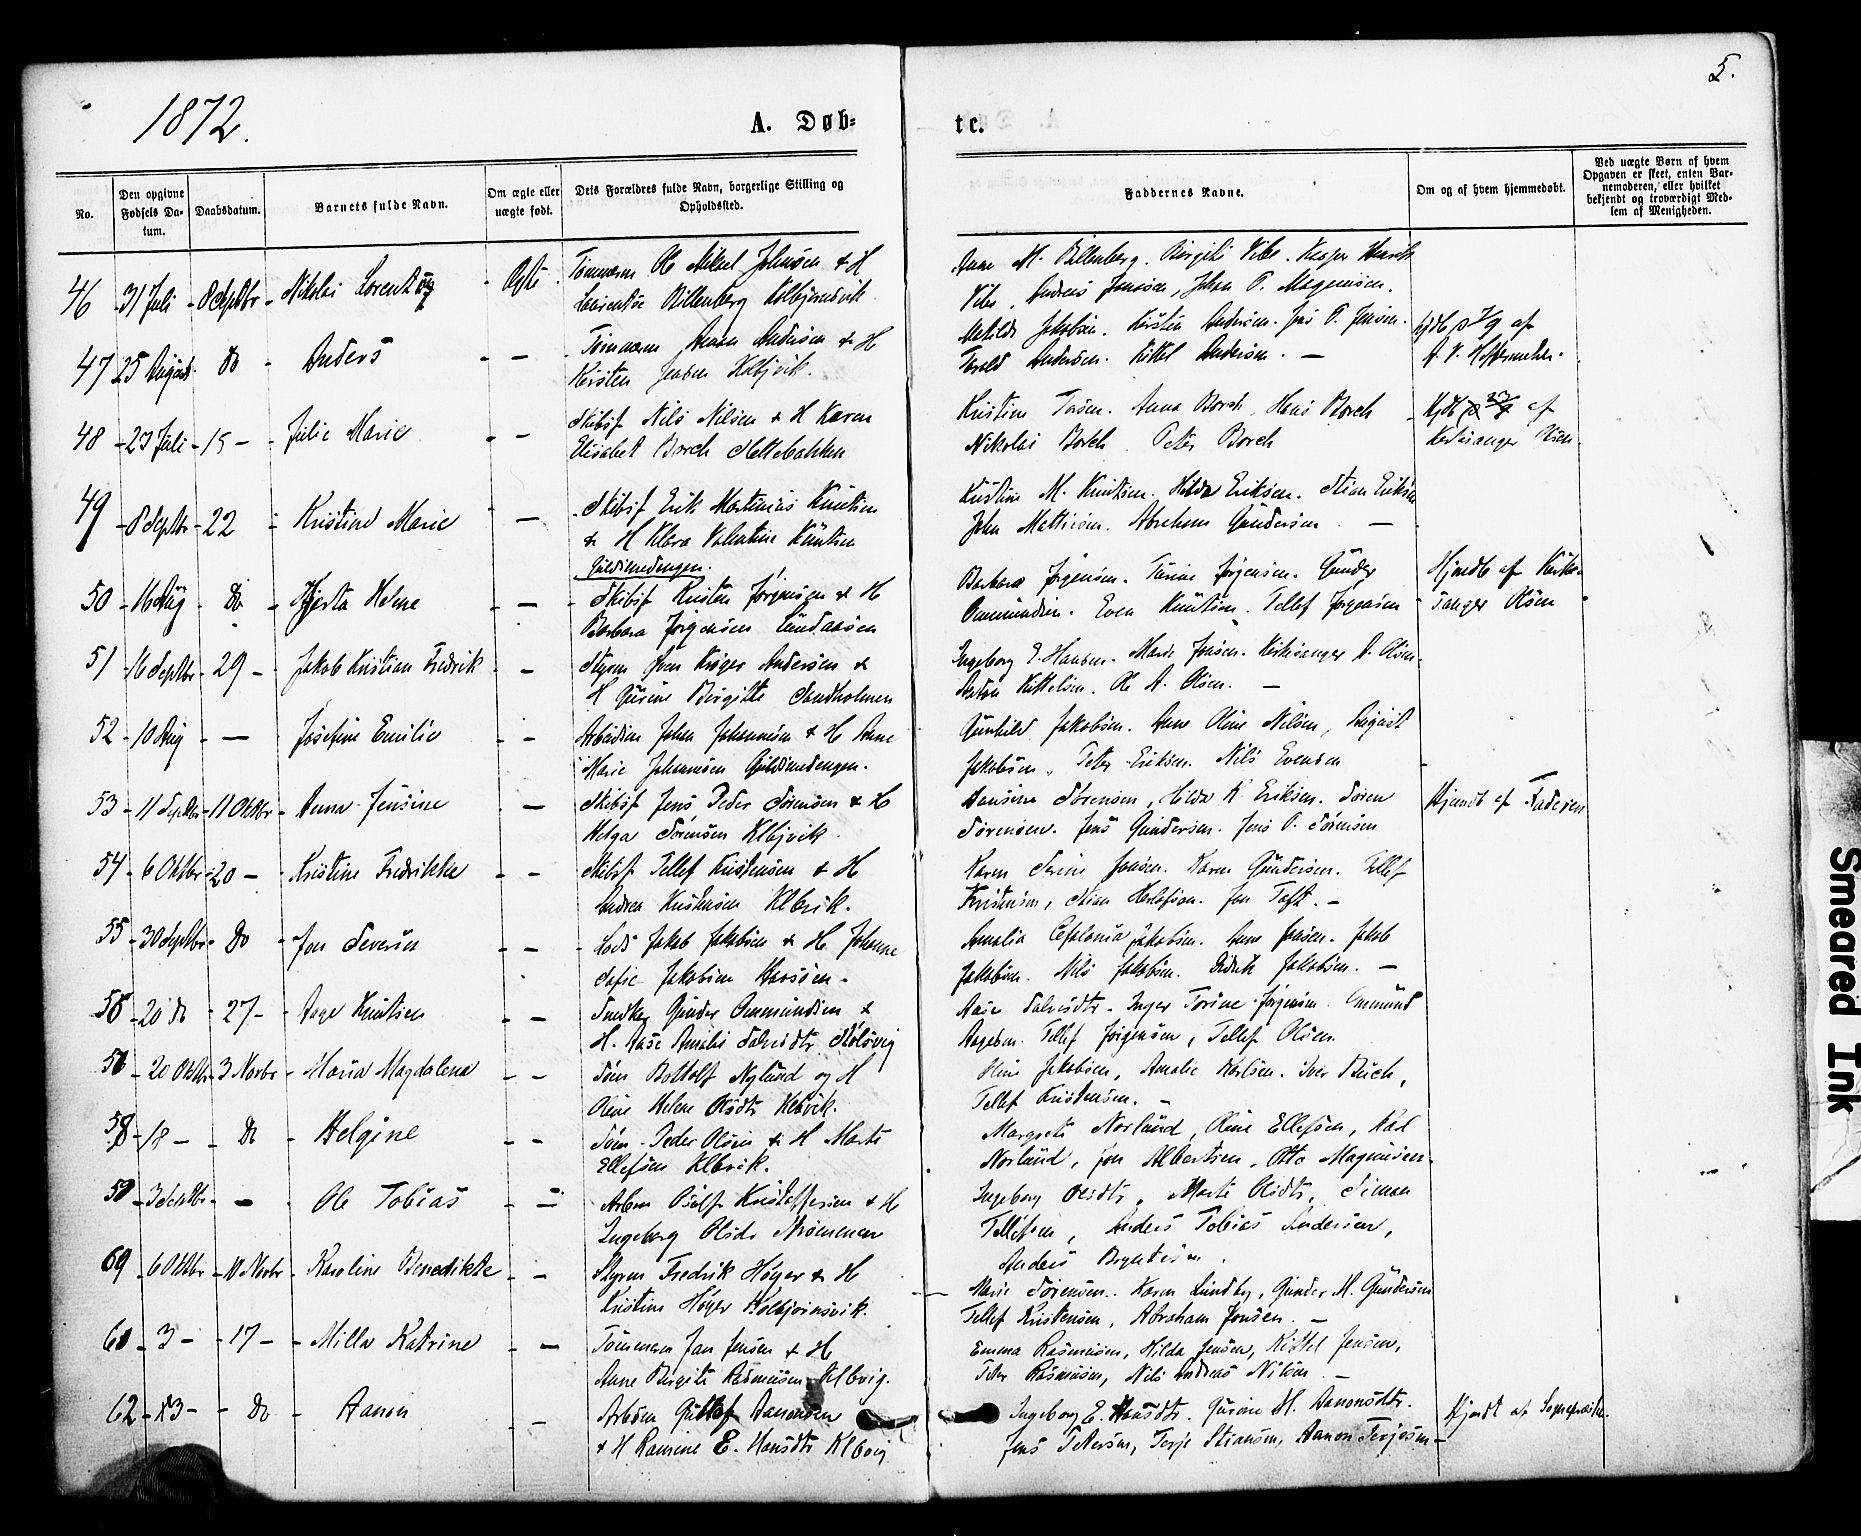 5.
1872.
A. Døb=
te.
No.
Den opgivne Fødsels Da-tum.
Daabsdatum.
Barnets fulde Navn.
Om ægte eller uægte født.
Dets Forældres fulde Navn, borgerlige Stilling og Opholdssted.
Faddernes Navne.
Om og af hvem hjemmedøbt.
Ved uægte Børn af hvem Opgaven er skeet, enten Bar-nemoderen, eller hvilket bekjendt og troværdigt Med-lem af Menigheden.
46 - 31 Juli - 8 Septbr - Nikolai - Ægte Tømmerm Ole Mikael Johnsen & H
Billenberg Kolbjørnsvik
Anne M. Billenberg. Birgite Vibe.
Vibe, Andreas Jensen, Johan P. Magnusen.
47 25 August - Do - Anders - - Tømmerm Andersen & H
Kirsten Jensen
Matilde Jakobsen. Kirsten Andersen. Jens P. Jensen.
Andersen. Kittel Andersen. —
af
48 - 23 Juli - 15 - - Julie Marie - - Skibsf Nils Nilsen & H Karen
Elisabet Borch
Kristine Anna Borch, Hans Borch
Nikolai Borch Peter Borch
af
Olsen
49 - 8 Septbr - 22 - Kristine Marie - Skibsf Erik Martinius Knutsen
& H Klara Valentine Knutsen
Guldsmedengen.
Kristine M. Knutsen. Hilda Eriksen. Stian Eriksen
John Abraham Gundersen —
50 - 16 Aug - Do - Helene - - Skibsf Kristen Jørgensen & H
Barbara Jørgensen
Barbara Jørgensen. Jørgensen. Gunder
Ommundsen. Even Knutsen. Tellef Jørgensen
Hjmdb af Kirke-
sanger Olsen
51 - 16 Septbr - 29 - Jakob Kristian Fredrik - - Styrm Andersen &
H Gurine Birgitte Sandholmen
Ingeborg E. Hansen. Marie Jensen. Kirkesanger A. Olsen.
Anton Kittelsen. Ole A. Olsen. —
52 - 10 Aug - — - Josefine Emilie - - Johan Johannesen & H Anne
Marie Johannesen Guldsmedengen.
Gunhild Jakobsen. Anne Oline Nilsen, August
Jakobsen, Peter Eriksen. Nils Evensen
53 - 11 Septbr - 11 Oktbr - Anna Jensine - Skibsf Jens Peder Sørensen & H
Helga Sørensen Klbjvik.
Hansine Sørensen, Hilda K. Eriksen. Søren
Sørensen. Jens Gundersen. Jens P. Sørensen
Hjemdt af Faderen
54 - 6 Oktbr - 20 - - Kristine Fredrikke - - Skibsf Tellef Kristensen & H
Andrea Kristensen Klbvik.
Karen Serine Jensen. Karen Gundersen. Tellef
Kristensen, Stian Herlofson. Jon Toft. -
55 - 30 Septbr - Do - Jon Severin - - Lods Jakob Jakobsen & H Johanne
Sofie Jakobsen
Amalia Cefalonia Jakobsen. Anne Jensen. Jakob
Jakobsen. Nils Jakobsen. Didrik Jakobsen. —
56 - 20 Do - 27 - - Aage Knutsen - - Gunder Ommundsen &
H. Aase Amalie
Aase Inger Torine Jørgensen Ommund
Aagesen. Tellef Jørgensen, Tellef Olsen
- 20 Oktbr - 3 Novbr - Maria Magdalena - - Tøm Bottolf Nylund og H
Oline Helene Olsdtr Klbvik.
Oline Jakobsen, Amalie Karlsen. Iver Buch,
Tellef Kristensen. -
58 - 18 - - Do - Helgine - - Tøm Peder Olsen & H Marte
Ellefsen Klbvik.
Margrete Norlund, Oline Ellefsen, Karl
Norlund, Jon Albertsen, Otto Magnusen.
59 - 3 Septbr - - Ole Tobias - Kristoffersen & H
Ingeborg Olsdr Strømmen
Ingeborg Olsdtr, Marte Olsdtr, Simon
Tellefsen, Anders Tobias Andersen,
Anders
- 6 Oktbr - 10 Novbr - Karoline Benedikte - - Styrm Fredrik Høyer & H
Kristine Høyer Kolbjørnsvik.
Marie Sørensen. Karen Lundby, Gunder M. Gundersen
Tellef Kristensen, Abraham Jensen. —
- 3 - - 17 - - Milla Katrine - - Tømmerm Jan Jensen & H
Anne Birgite Rasmusen Klbvig.
Emma Rasmusen, Hilda Jensen, Kittel Jensen,
Peter Rasmusen, Nils Andreas Nilsen —
62 - - Do - Aanon - Arbsm Aanonsen
& H Ramine E. Hansdtr Klbvig
Ingeborg E. Hansdtr. Gurine H. Aanonsdtr.
Jens Petersen, Terje Stiansen, Aanon Terjesen -
Hjemdt af Sogneprsten.
Smeared Ink